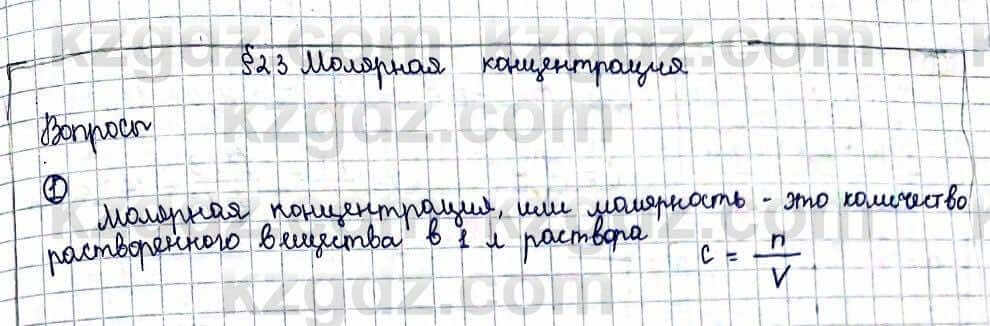 §23 Молярная концентрация
Вопросы
1
Молярная концентрация, или молярность - это количество
растворенного вещества в 1 л раствора
c = n/V
kzgdz.com